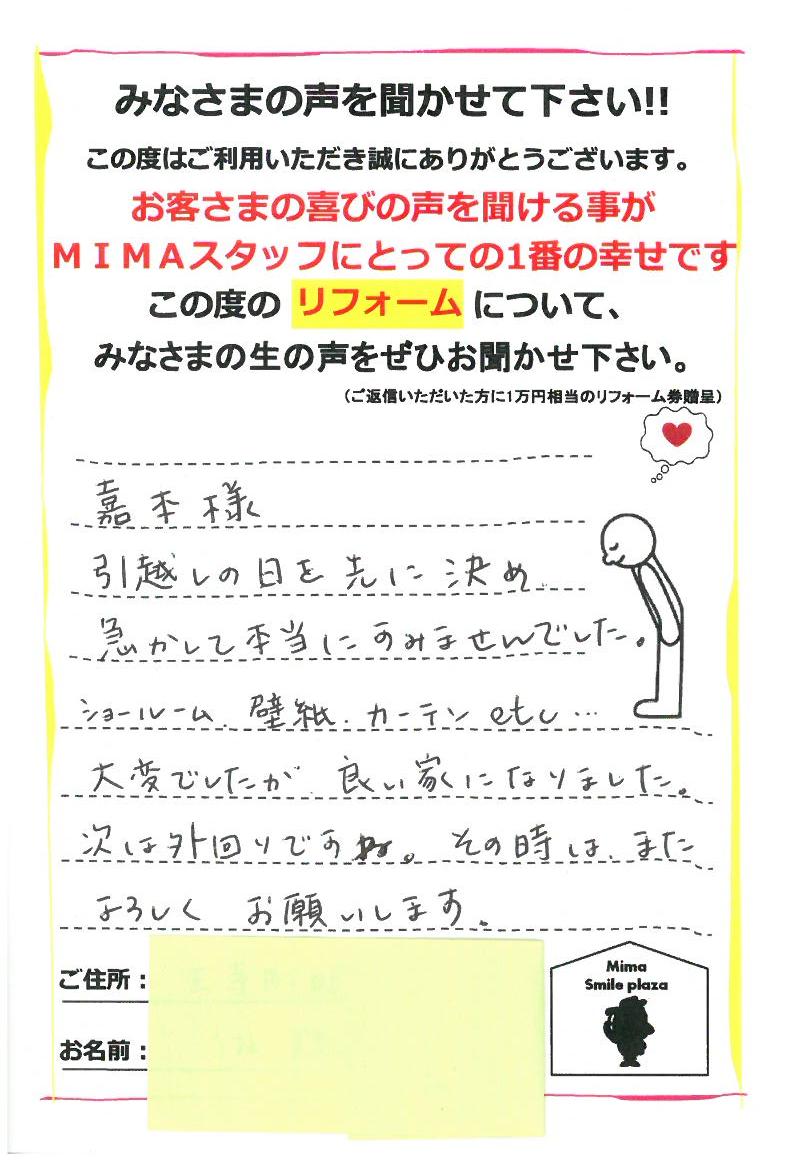 みなさまの声を聞かせて下さい!!
この度はご利用いただき誠にありがとうございます。
お客さまの喜びの声を聞ける事が
ＭＩＭＡスタッフにとっての1番の幸せです
この度の リフォーム について、
みなさまの生の声をぜひお聞かせ下さい。
（ご返信いただいた方に1万円相当のリフォーム券贈呈）
嘉本様
引越しの日を先に決め
急かして本当にすみませんでした。
ショールーム、壁紙、カーテン etc…
大変でしたが、良い家になりました。
次は外回りですね。その時は、また
よろしく お願いします。
ご住所：
お名前：
Mima
Smile plaza